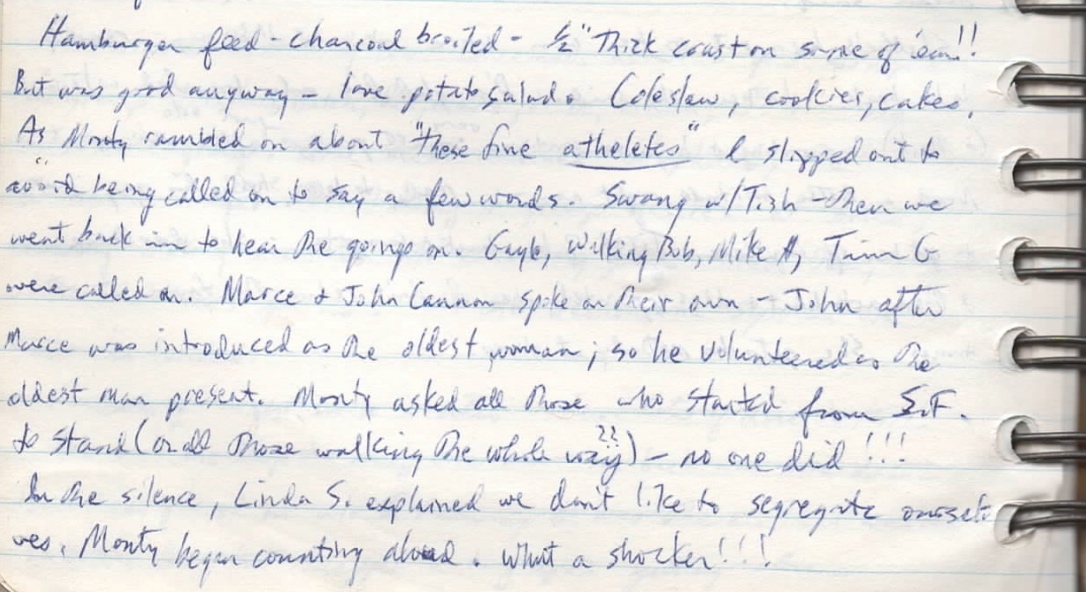 Hamburger feed - charcoal broiled - ½" thick crust on some of 'em!!
But was good anyway - love potato salad. Coleslaw, cookies, cakes.
As Monty rambled on about "these fine atheletes" I slipped out to
avoid being called on to say a few words. Swang w/Tish - then we
went back in to hear the goings on. Gayle, Walking Bob, Mike H, Tim G
were called on. Marce & John Cannon spoke on their own - John after
Marce was introduced as the oldest woman; so he volunteered as the
oldest man present. Monty asked all those who started from S.F.
to stand (or all those walking the whole way??) - no one did!!!
In the silence, Linda S. explained we don't like to segregate oursel
ves. Monty began counting aloud. What a shocker!!!